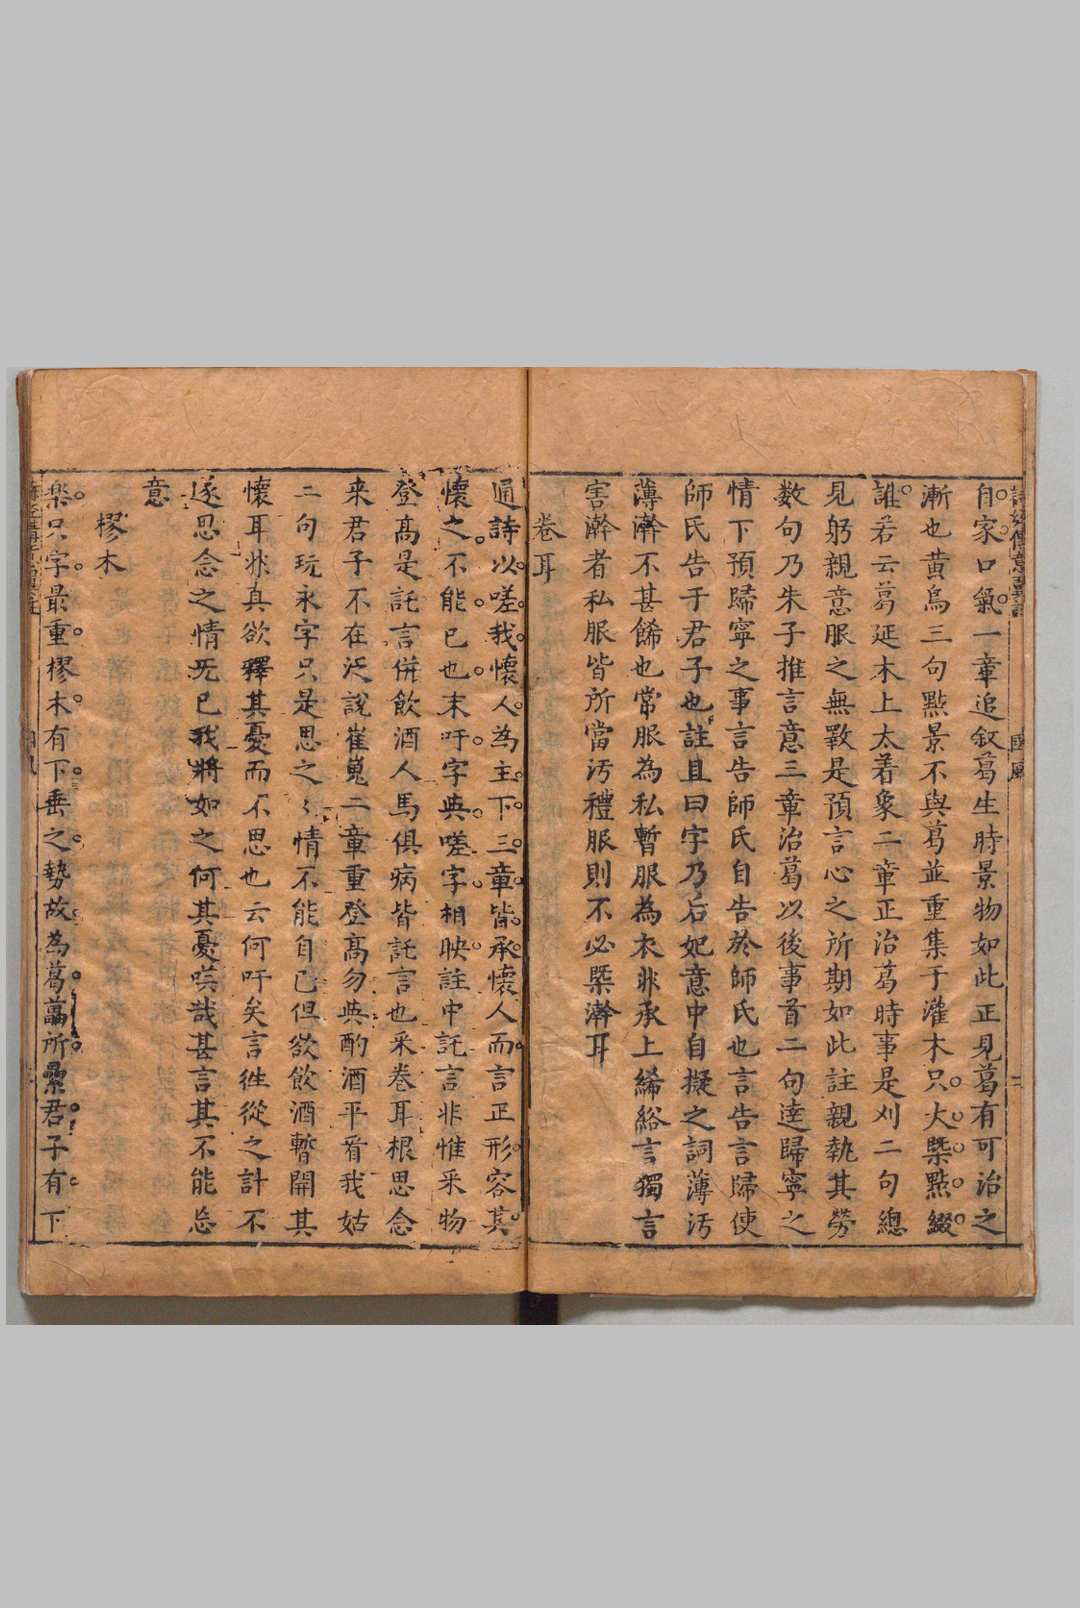 自家口氣一章追叙葛生時景物如此正見葛有可治之
漸也黄鳥三句㸃景不與葛並重集于灌木只大槩㸃綴
誰若云葛延木上太着象二章正治葛時事是刈二句總
見躬親意服之無斁是預言心之所期如此註親執其勞
数句乃朱子推言意三章治葛以後事首二句逹歸寧之
情下預歸寧之事言告師氏自告於師氏也言告言歸使
師氏告于君子也註且曰字乃后妃意中自擬之詞薄汚
薄澣不甚餙也常服為私暫服為衣非承上絺綌言獨言
害澣者私服皆所當汚禮服則不必槩澣耳
卷耳
通詩以嗟我懷人為主下三章皆承懷人而言正形容其
懷之不能已也末吁字與嗟字相映註中託言非惟采物
登髙是託言併飲酒人馬俱病皆託言也采卷耳根思念
来君子不在 說崔嵬二章重登髙勿與酌酒平看我姑
二句玩永字只是思之〻情不能自已但欲飲酒暫開其
懷耳非真欲釋其憂而不思也云何吁矣言徃從之計不
遂思念之情无已我將如之何其憂嘆哉甚言其不能忘
意
樛木
楽只字最重樛木有下垂之勢故為葛藟所纍君子有下
國風
二